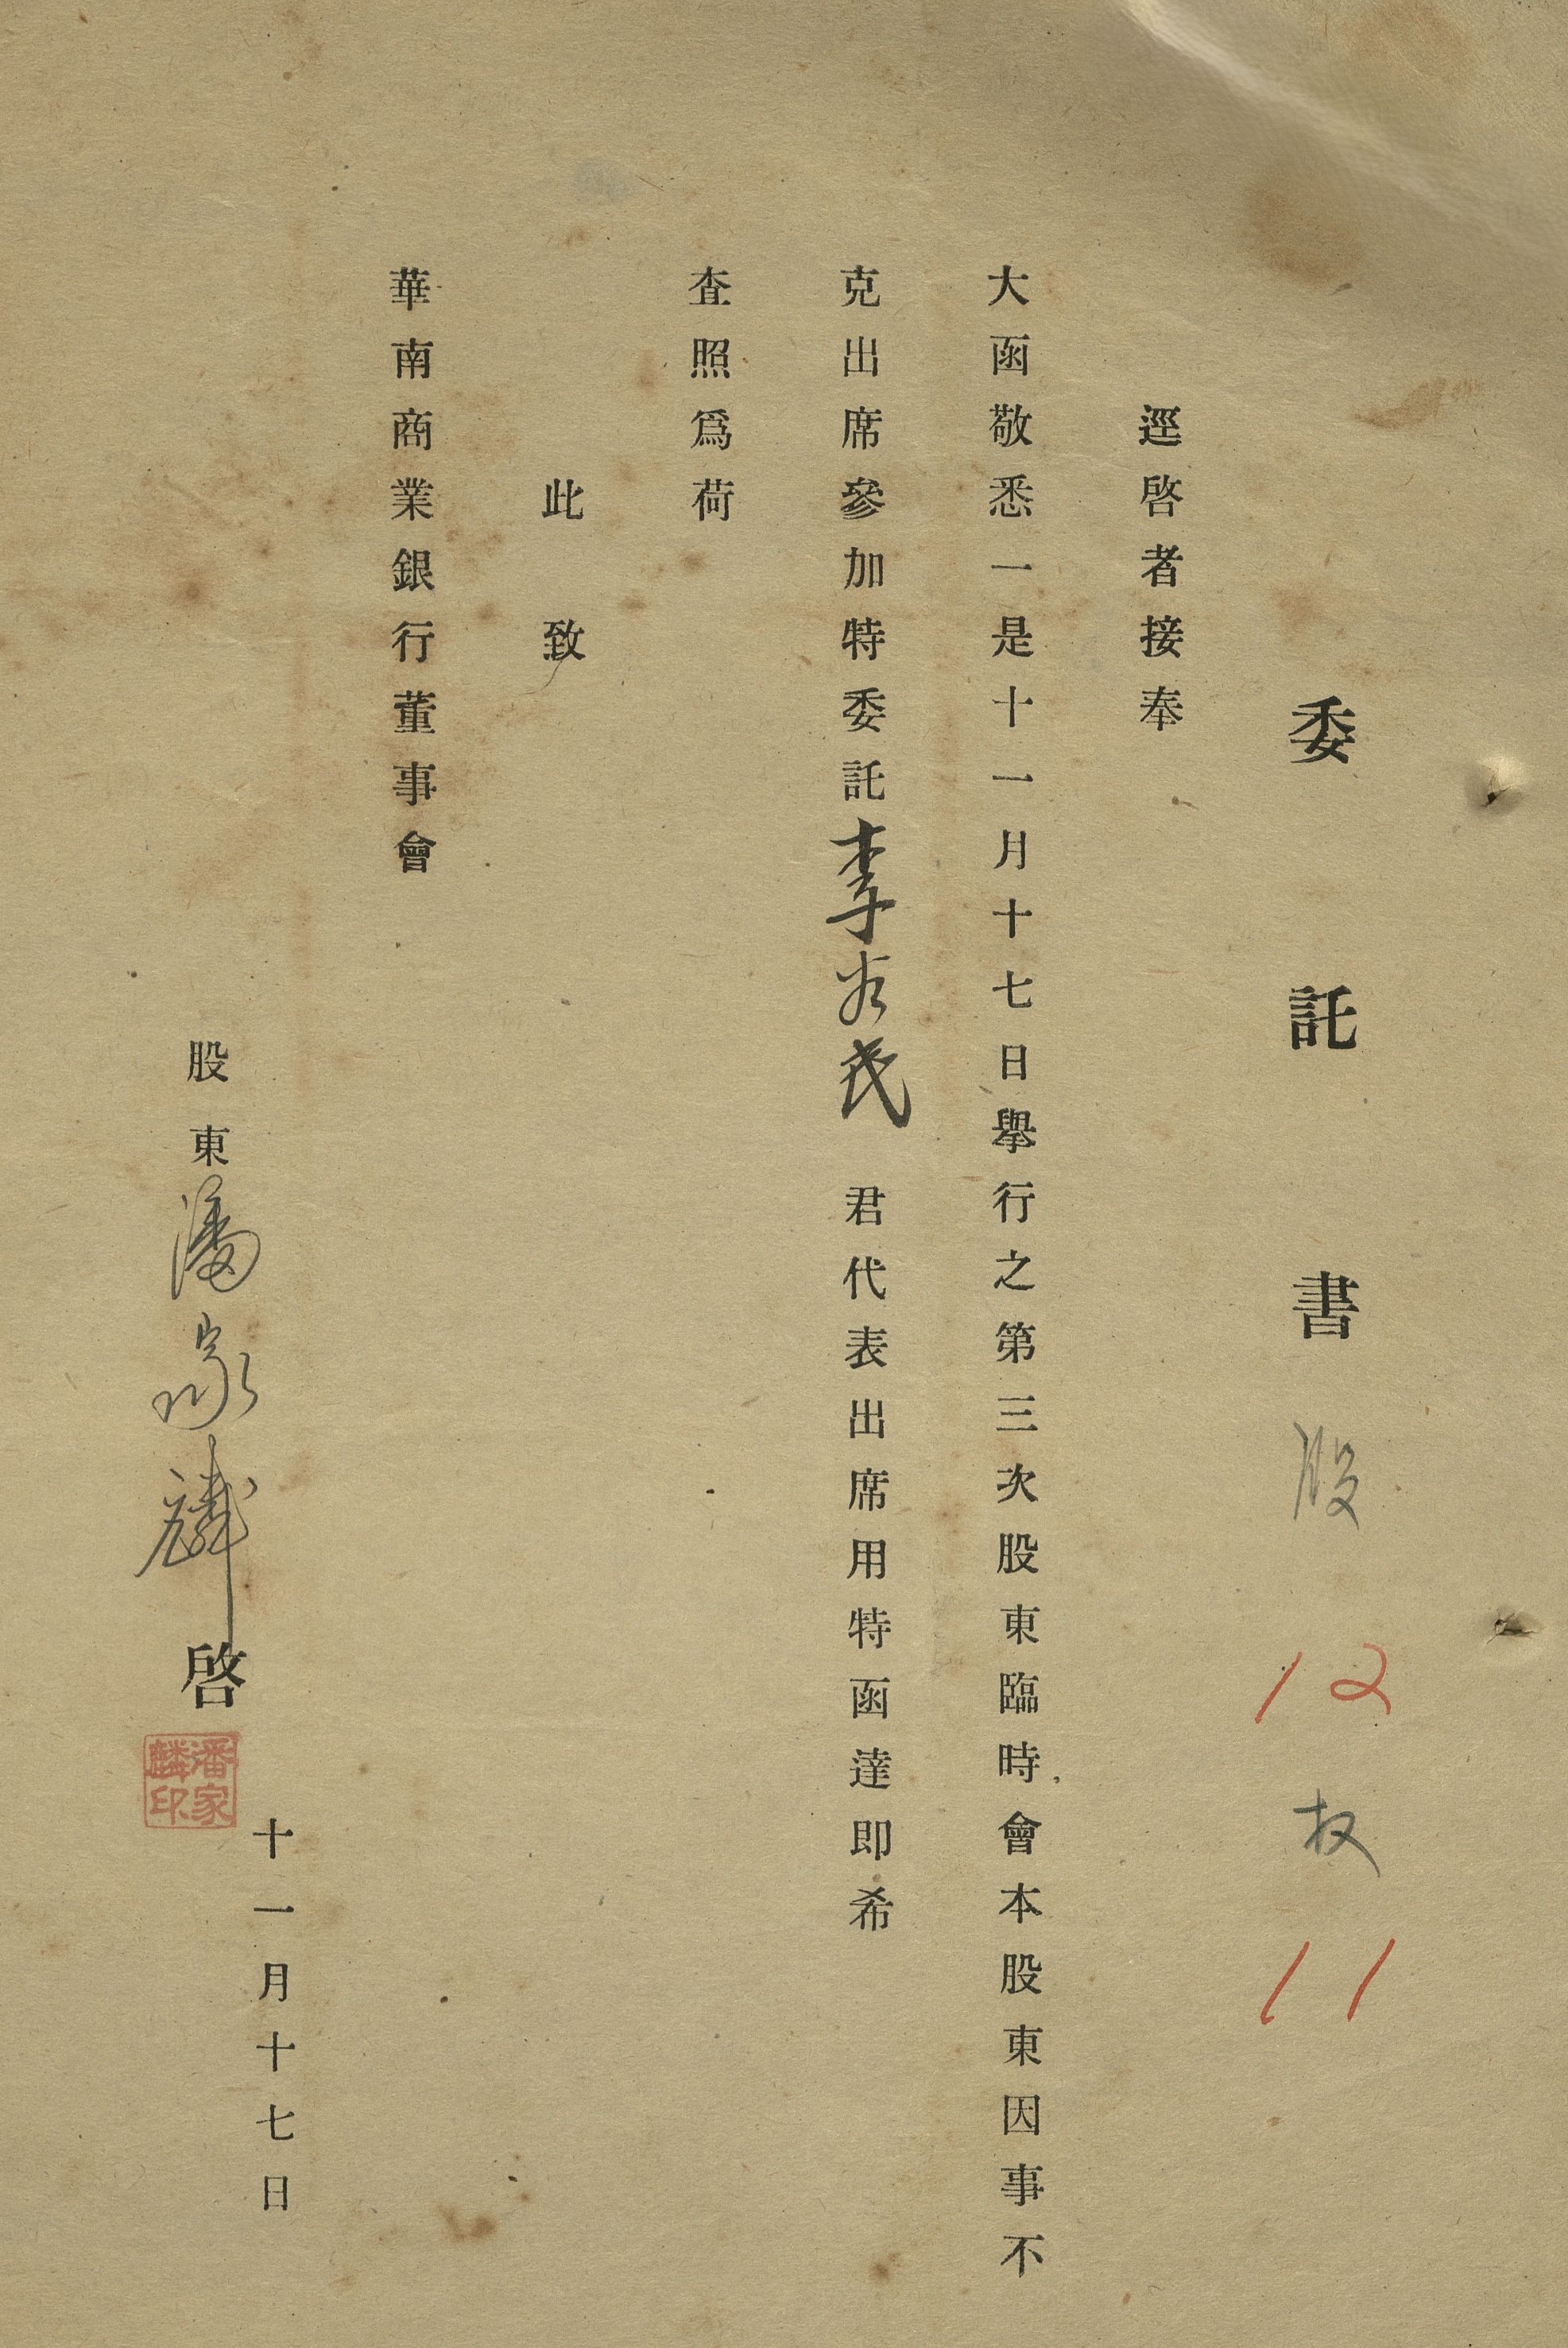 委託書 股 12 权 11
逕啓者接奉
大函敬悉一是十一月十七日舉行之第三次股東臨時會本股東因事不
克出席參加特委託李民 君代表出席用特函達即希
査照爲荷
此致
華南商業銀行董事會
十一月十七日
股東潘家麟啓
潘家麟印